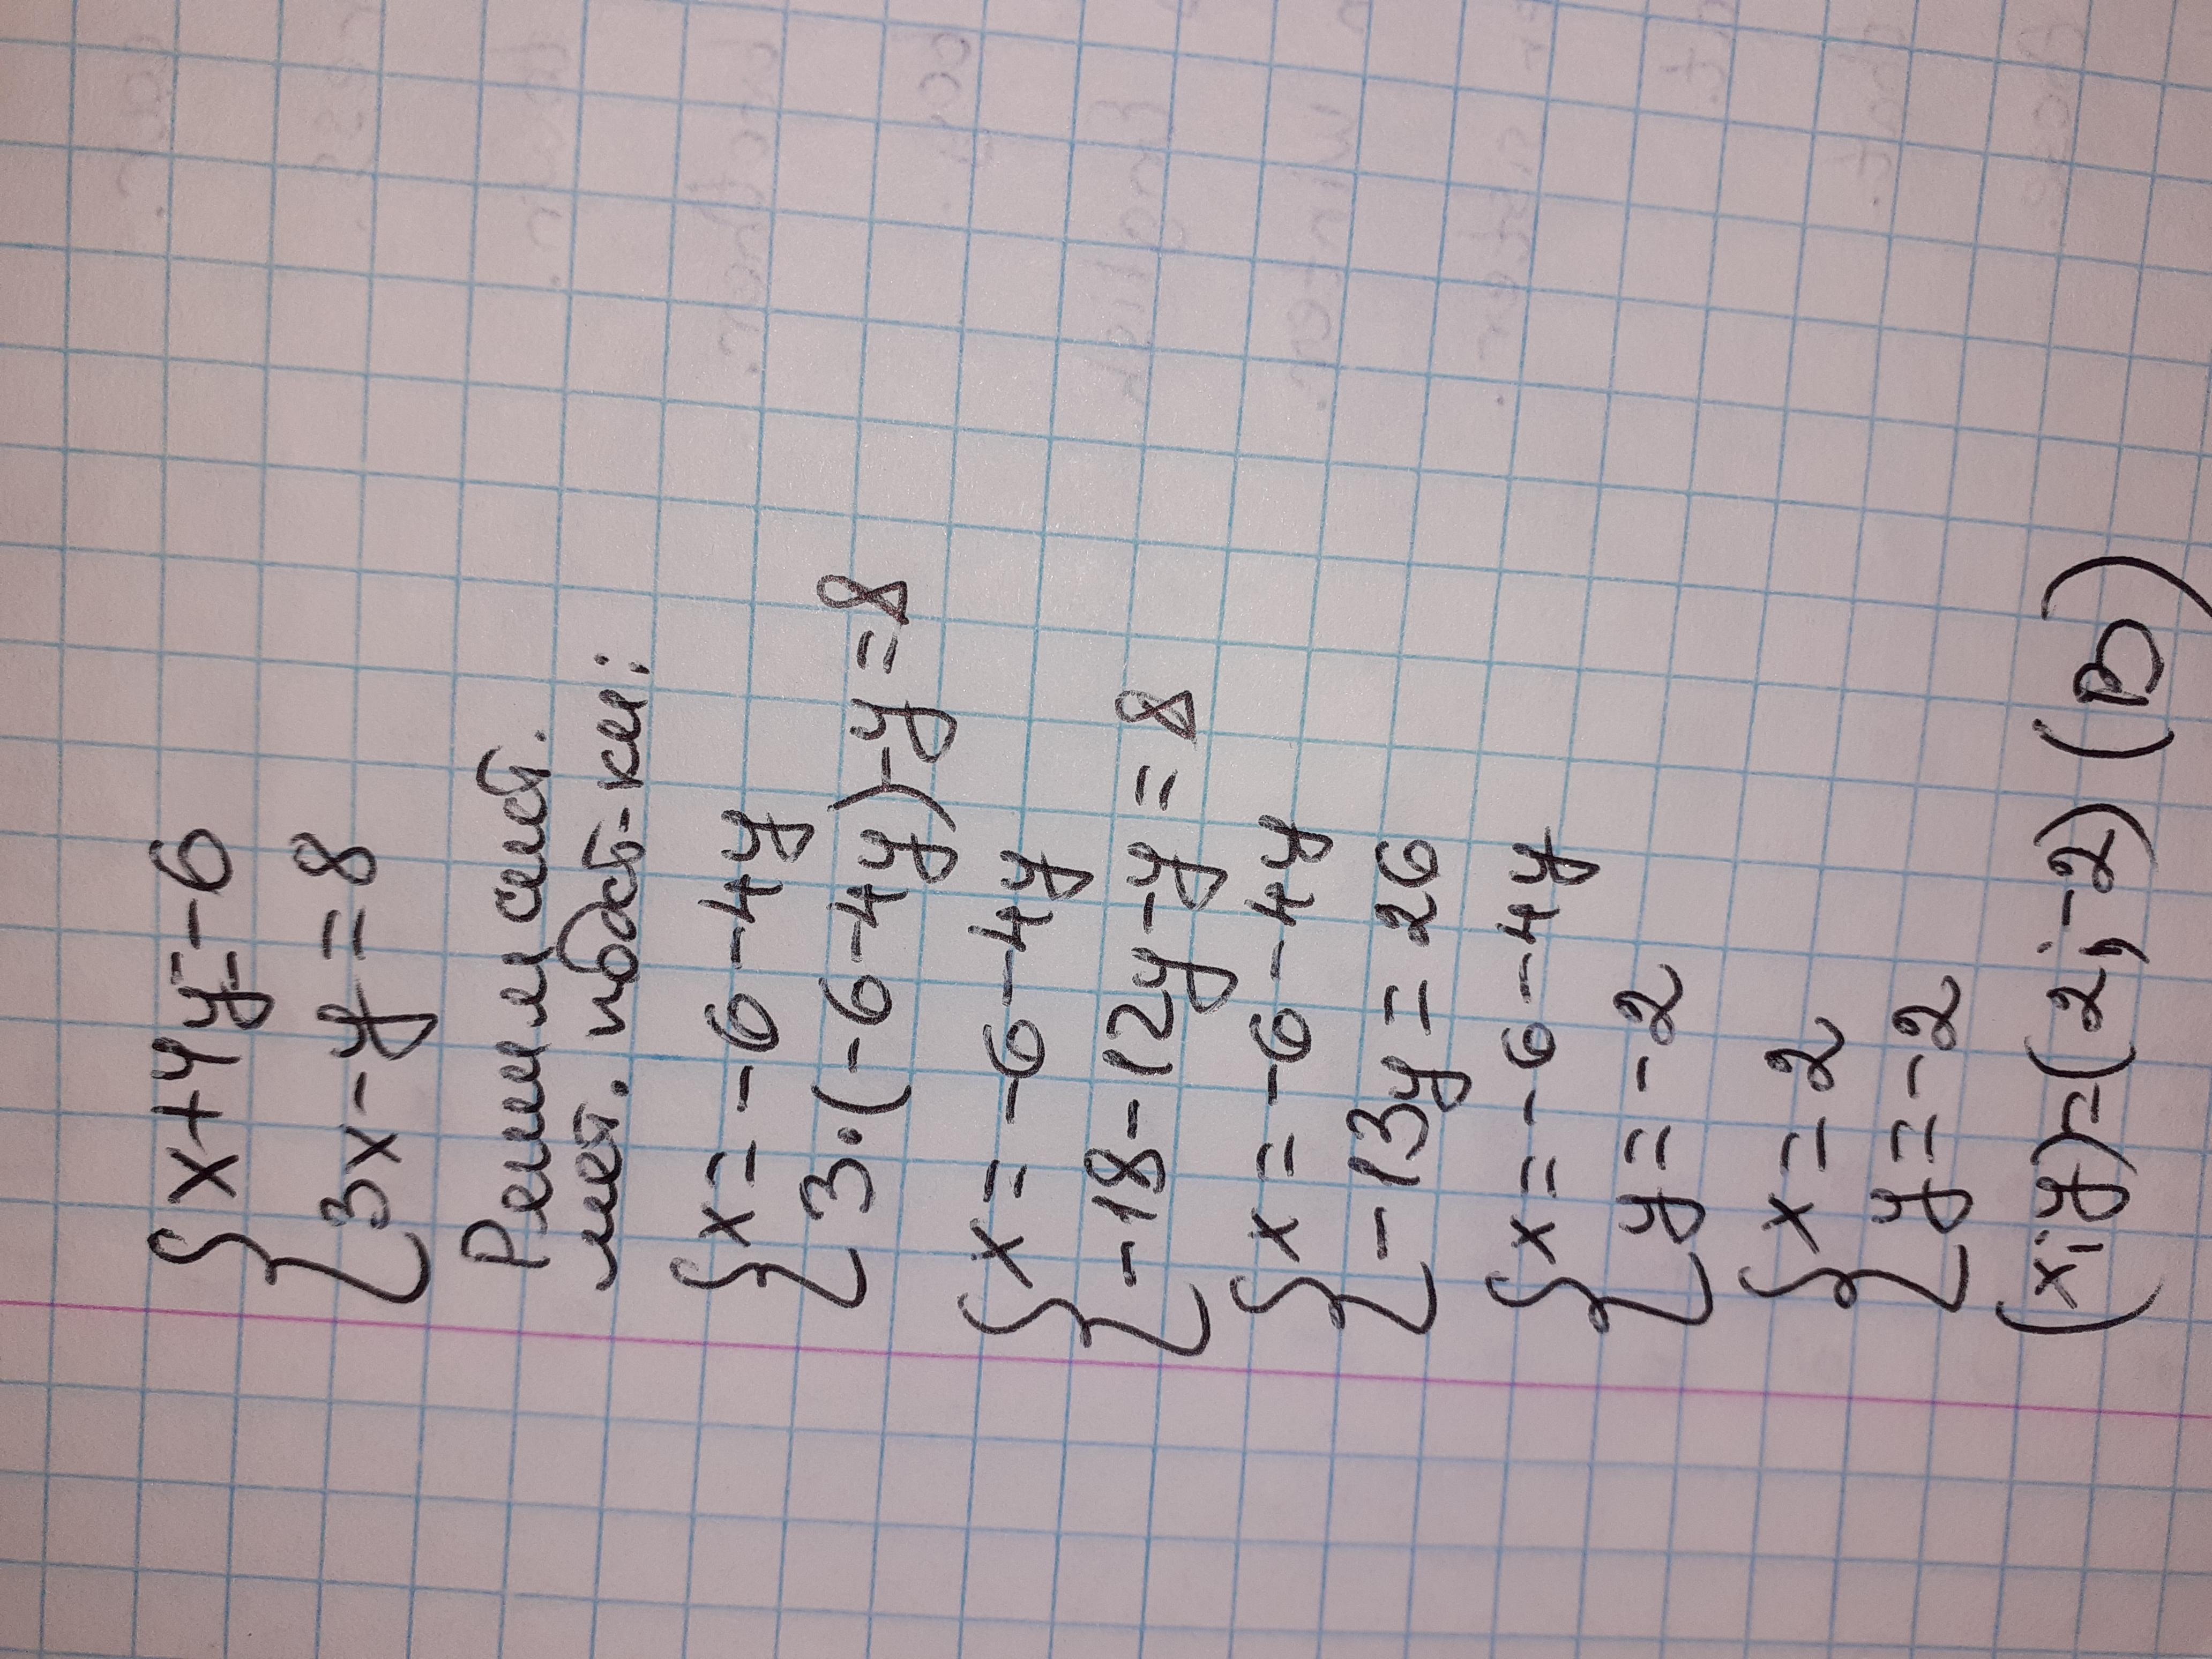 {x+4y=-6
{3x-y=8
Решим сист.
мет. подст-ки:
{x=-6-4y
{3·(-6-4y)-y=8
{x=-6-4y
{-18-12y-y=8
{x=-6-4y
{-13y=26
{x=-6-4y
{y=-2
{x=2
{y=-2
(x;y)=(2;-2) (В)